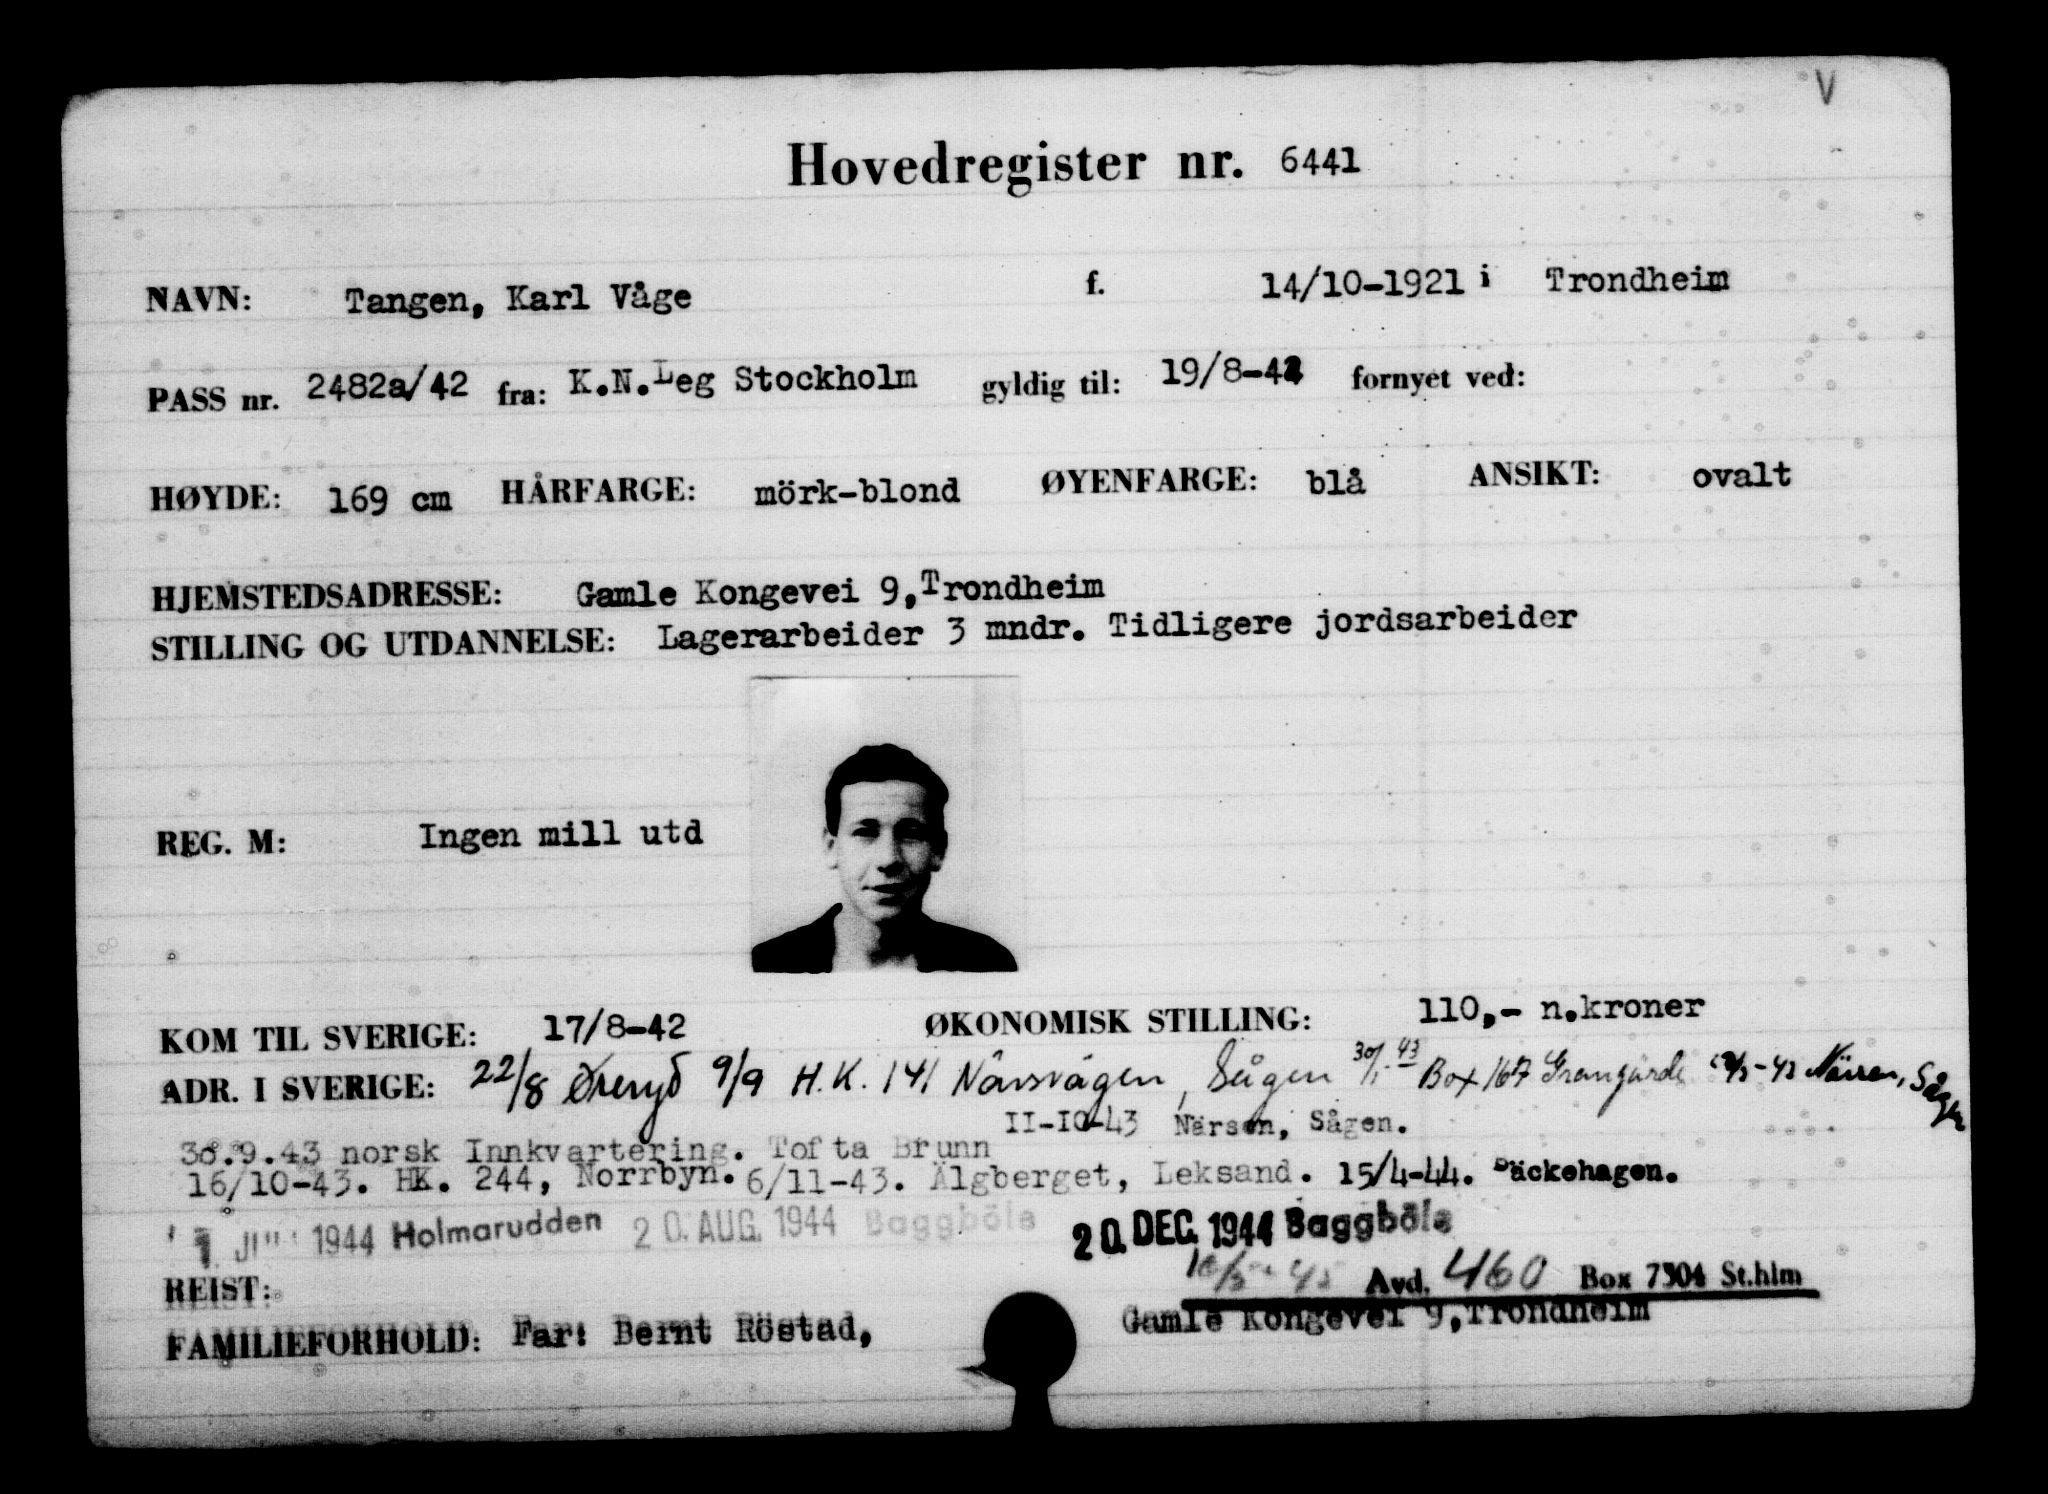 V
Hovedregister nr. 6441
NAVN: Tangen, Karl Våge f. 14/10-1921 i Trondheim
PASS nr. 2482a/42 fra: K.N.Leg Stockholm gyldig til: 19/8-42 fornyet ved:
HØYDE: 169 cm HÅRFARGE: mörk-blond ØYENFARGE: blå ANSIKT: ovalt
HJEMSTEDSADRESSE: Gamle Kongevei 9,Trondheim
STILLING OG UTDANNELSE: Lagerarbeider 3 mndr. Tidligere jordsarbeider
REG. M: Ingen mill utd
KOM TIL SVERIGE: 17/8-42 ØKONOMISK STILLING: 110,- n.kroner
ADR. I SVERIGE: 22/8 Øreryd 9/9 H.K. 141 Nårsvägen, Sågen 30/1-43 Box 167 Grangärde -43 Närsen, Sågen
II-IO-43 Närsen, Sågen.
30.9.43 norsk Innkvartering. Tofta Brunn
16/10-43. HK. 244, Norrbyn. 6/11-43. Älgberget, Leksand. 15/4-44. Bäckehagen.
1944 Holmarudden 20. AUG. 1944 Baggböle 20. DEC. 1944 Baggböle
45 Avd. 460 Box 7304 St.hlm
REIST:
FAMILIEFORHOLD: Far: Bernt Röstad, Gamle Kongevei 9,Trondheim